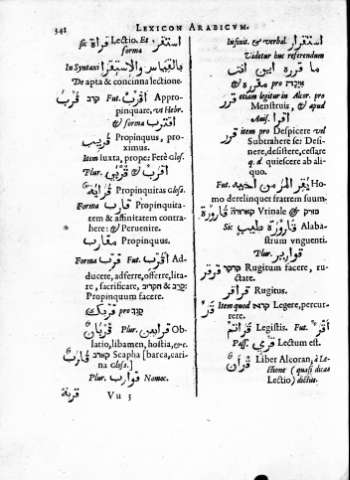 342
LEXICON ARABICVM.
Sic قراة Lectio. Et استقرا
forma
In Syntaxi بالقياس والاستقرا
De apta & concinna lectione.
قرب קרב Fut. اقرب Appro-
pinquare, vt Hebr.
& forma اقترب
قريب Propinquus, pro-
ximus.
Item iuxta, prope: Ferè Glos.
Plur. اقرب & قربي
قرابة Propinquitas Glosa.
Forma قارب Propinquita-
tem & affinitatem contra-
here: & Peruenire.
مقارب Propinquus.
Forma قرب Fut. اقرب Ad-
ducere, adferre, offerre, lita-
re, sacrificare, הקריב & קרב:
Propinquum facere.
قربك pro
قربان Plur. قرابين Ob-
latio, libamen, hostia, &c.
قارب קארב Scapha [barca, cari-
na Glosa.]
Plur. قوارب Namoc.
Vu 3
قربة
Infinit. & verbal. استقرار
Videtur huc referendum
ما قرره اين انت
מקררה pro مقررة &
قرر etiam legitur in Alcor. pro
Menstruis, & apud
Auis. اقرا
قرر item pro Despicere vel
Subtrahere se: Desi-
nere, desistere, cessare
q. d. quiescere ab ali-
quo.
Fut. يقر المر من اخيه Ho-
mo derelinquet fratrem suum.
قارورة קארורה Vrinale & מזרק
Sic قارورة طيب Alaba-
strum vnguenti.
Plur. قوارير
قرقر קרקר Rugitum facere, ru-
ctare.
قراقر Rugitus.
قرا Item quod קרא Legere, percur-
rere.
قراتم Legistis. Fut. اقر
Pass. قري Lectum est.
قران Liber Alcoran, à Le-
ctione (quasi dicas
Lectio) dictus.